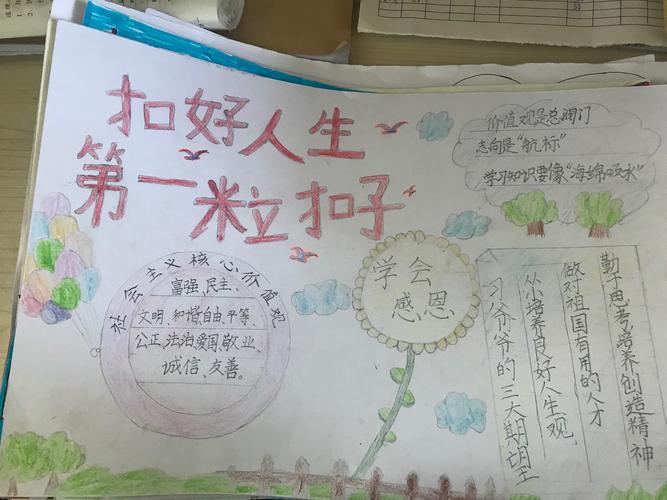 扣好人生
第一粒扣子
价值观是总闸门
志向是“航标”
学习知识要像“海绵吸水”
社会主义核心价值观
富强、民主、
文明、和谐、自由、平等、
公正、法治、爱国、敬业、
诚信、友善。
学会
感恩
习爷爷的三大期望
从小培养良好人生观
做对祖国有用的人才
勤于思考培养创造精神